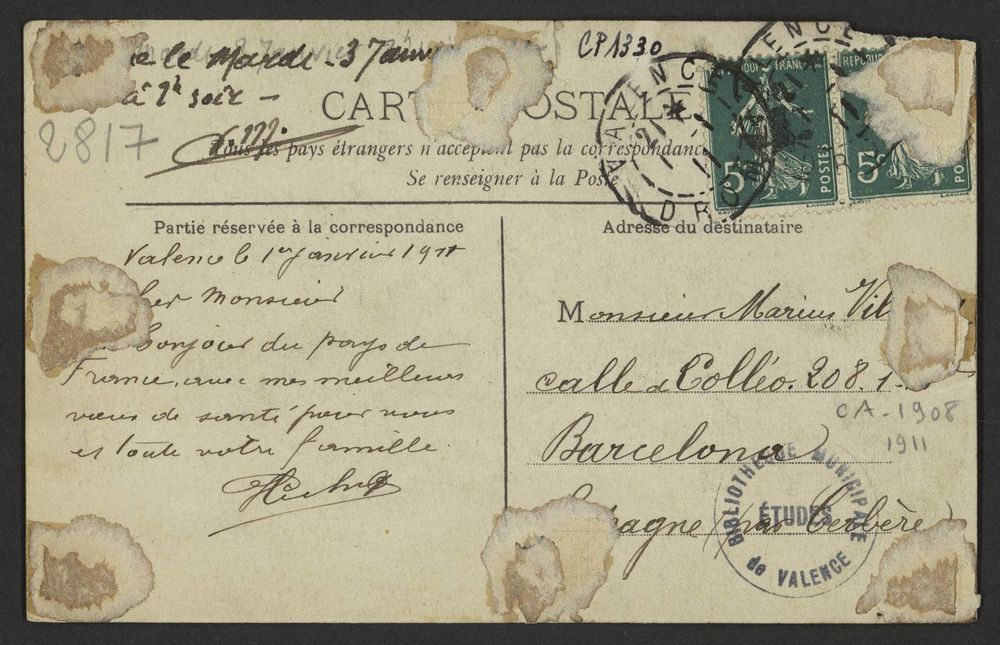 le Mardi 3 Janvi
à 2h soir -
CP1330
2817
CARTE POSTALE
Tous les pays étrangers n'acceptent pas la correspondance
Se renseigner à la Poste
VALENCE
DROME
21
1-1
11
RÉPUBLIQUE FRANÇAISE
5c
POSTES
5c
PO
Partie réservée à la correspondance
Valence le 1er janvier 1911
Cher Monsieur
bonjour du pays de
France, avec mes meilleurs
vœux de santé pour vous
et toute votre famille
Adresse du destinataire
Monsieur Marius Vil
calle Colléo. 208. 1.
CA-1908
1911
Barcelona
Espagne (par Cerbère)
BIBLIOTHEQUE MUNICIPALE
ÉTUDES
de VALENCE